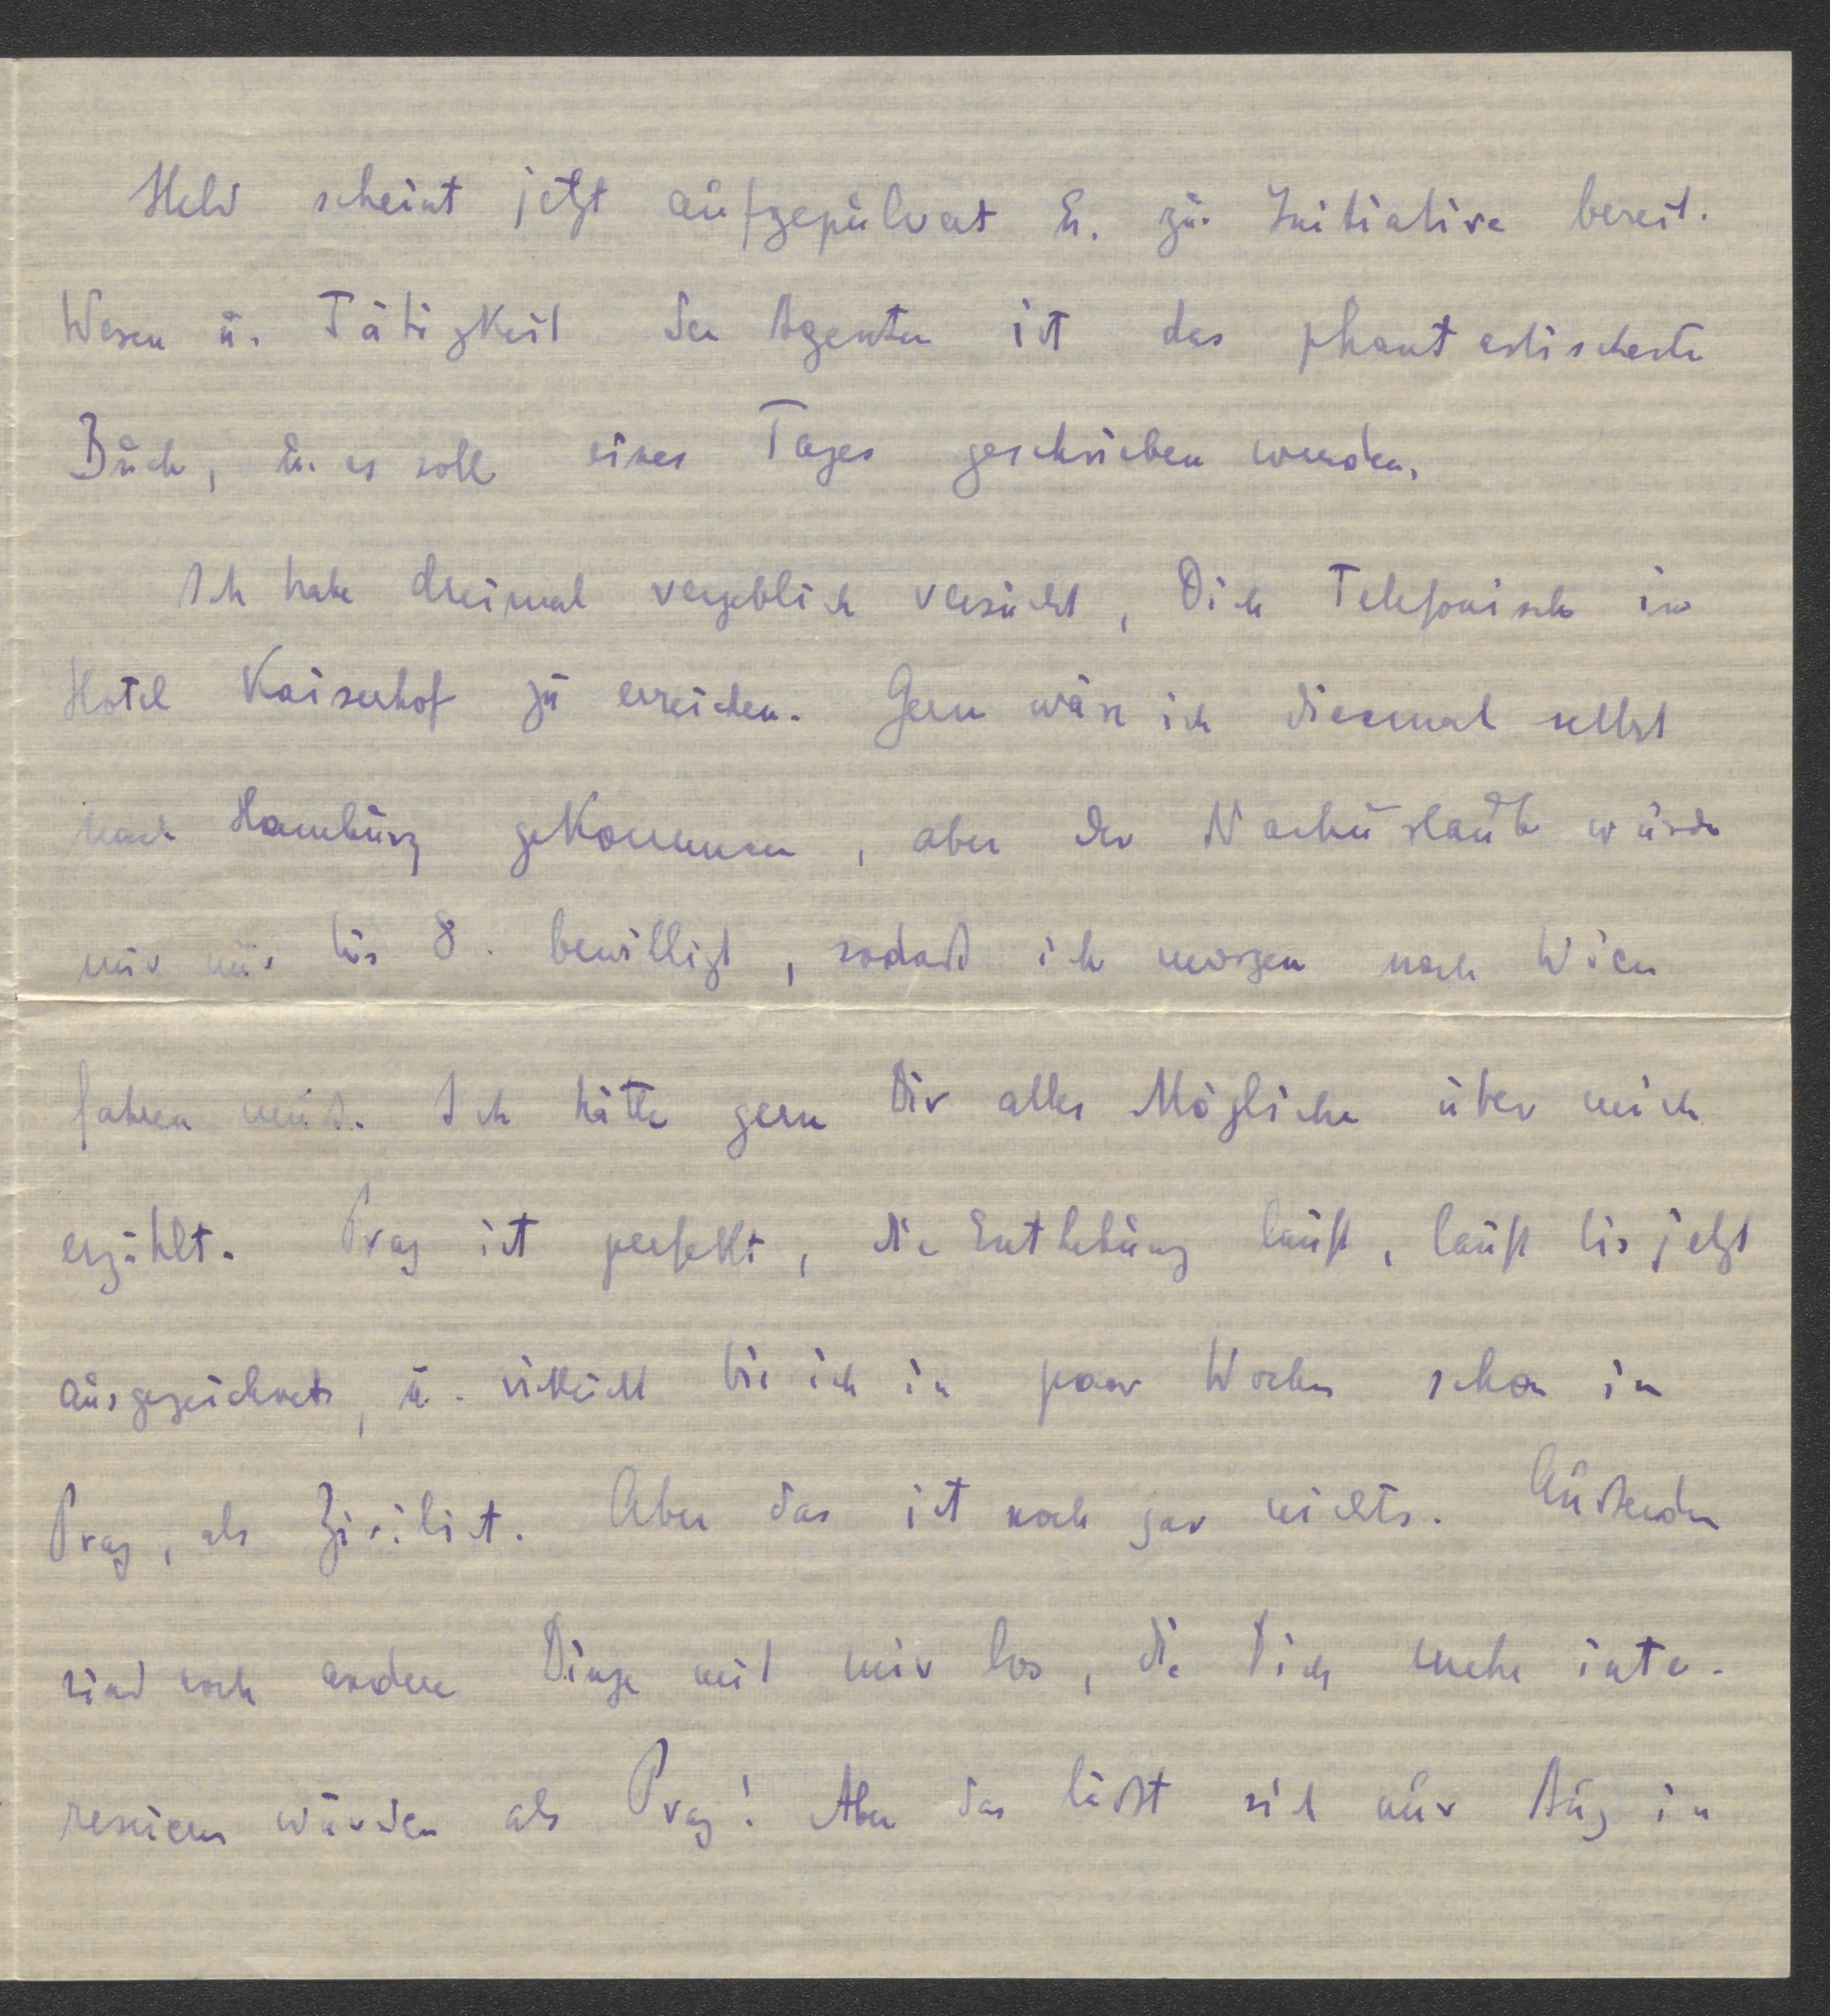 Held scheint jetzt aufgepulvert u. zur Initiative bereit.
Wesen u. Tätigkeit der Agenten ist das phantastischeste
Buch, u. es soll eines Tages geschrieben werden.
Ich habe dreimal vergeblich versucht, Dich Telefonisch im
Hotel Kaiserhof zu erreichen. Gern wäre ich diesmal selbst
nach Hamburg gekommen, aber der Nachurlaub wurde
mir nur bis 8. bewilligt, sodaß ich morgen nach Wien
fahren muß. Ich hätte gern Dir alles Mögliche über mich
erzählt. Prag ist perfekt, die Enthebung läuft, läuft bis jetzt
ausgezeichnet, u. vielleicht bin ich in paar Wochen schon in
Prag, als Zivilist. Aber das ist noch gar nichts. Außerdem
sind noch andere Dinge mit mir los, die Dich mehr inte-
ressieren würden als Prag! Aber das läßt sich nur Aug in